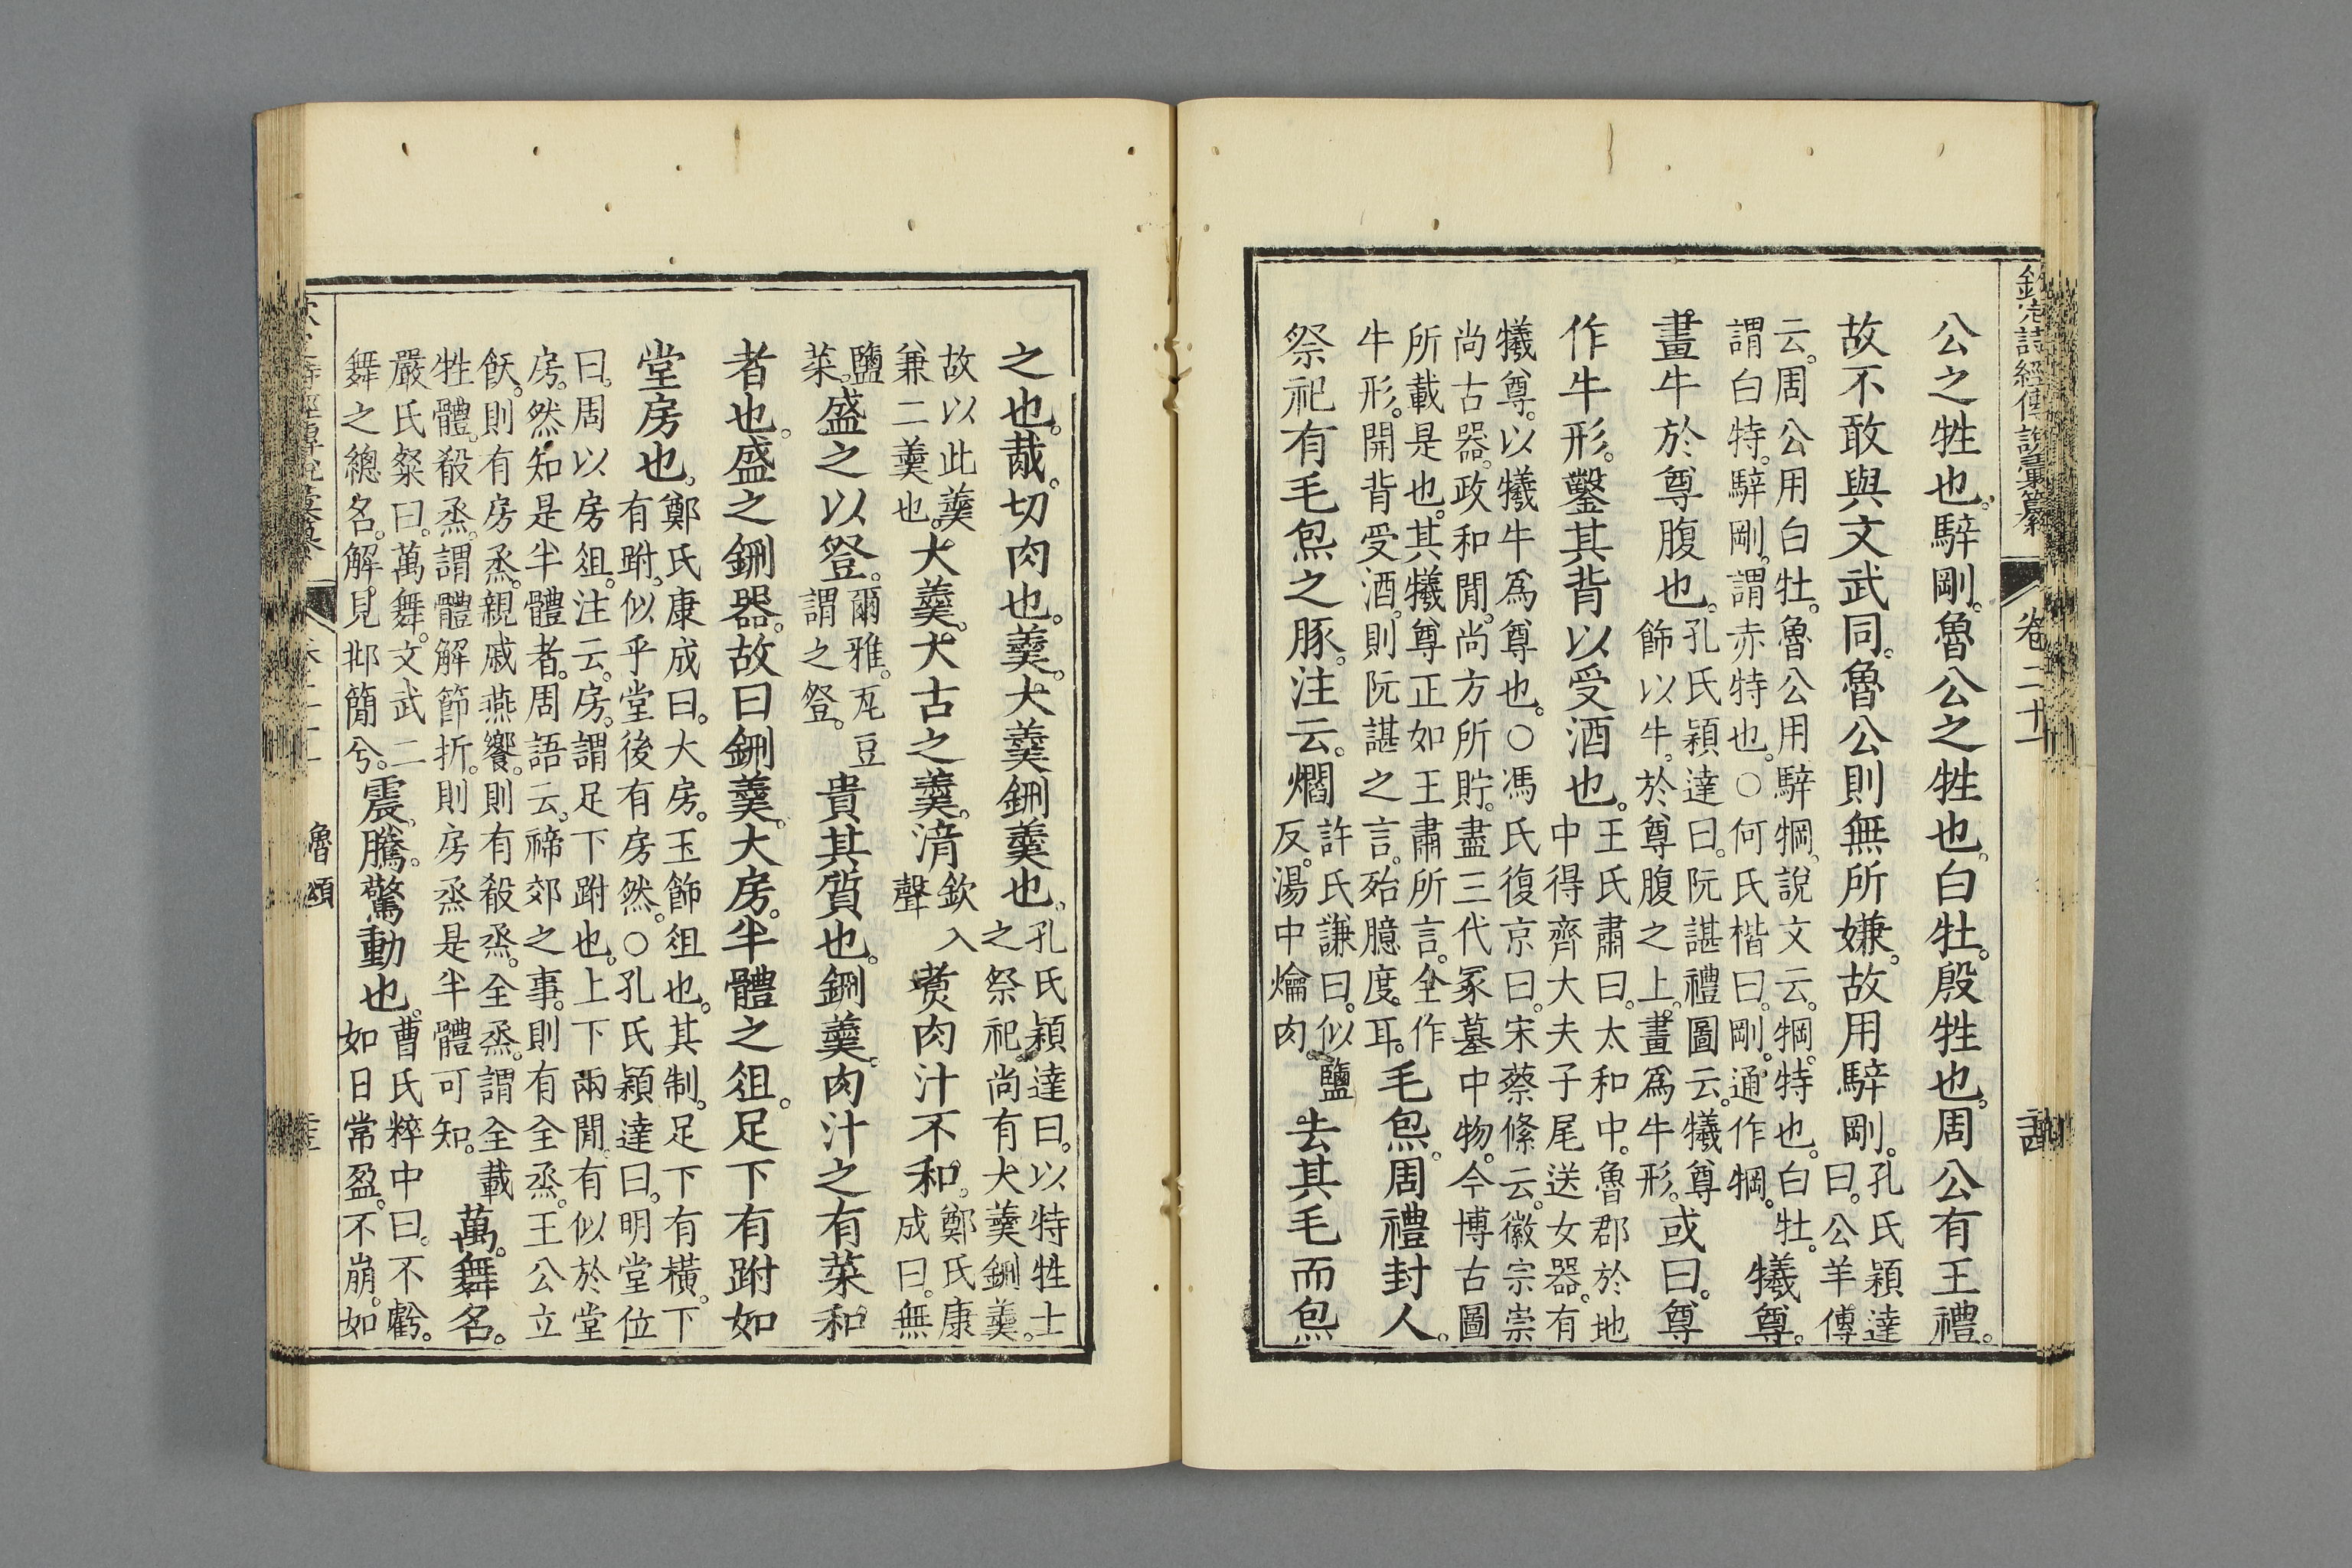 欽定詩經傳說彙纂　卷二十一
公之牲也。騂剛。魯公之牲也。白牡。殷牲也。周公有王禮。
故不敢與文武同。魯公則無所嫌。故用騂剛。孔氏穎達
曰。公羊傳
云。周公用白牡。魯公用騂犅。說文云。犅。特也。白牡。
謂白特。騂剛。謂赤特也。○何氏楷曰。剛。通作犅。犧尊。
畫牛於尊腹也。孔氏穎達曰。阮諶禮圖云。犧尊
飾以牛。於尊腹之上。畫爲牛形。或曰。尊
作牛形。鑿其背以受酒也。王氏肅曰。太和中。魯郡於地
中得齊大夫子尾送女器。有
犧尊。以犧牛爲尊也。○馮氏復京曰。宋蔡絛云。徽宗崇
尚古器。政和閒。尚方所貯。盡三代冢墓中物。今博古圖
所載是也。其犧尊正如王肅所言。全作
牛形。開背受酒。則阮諶之言。殆臆度耳。毛炰。周禮封人。
祭祀有毛炰之豚。注云。爓許氏謙曰。似鹽
反。湯中爚肉。去其毛而炰
之也。胾。切肉也。羹。大羹鉶羹也。孔氏穎達曰。以特牲士
之祭祀。尚有大羹鉶羹。
故以此羹
兼二羹也。大羹。大古之羹。湆欽入
聲煑肉汁不和。鄭氏康
成曰。無
鹽
菜。盛之以登。爾雅。瓦豆
謂之登。貴其質也。鉶羹。肉汁之有菜和
者也。盛之鉶器。故曰鉶羹。大房。半體之俎。足下有跗如
堂房也。鄭氏康成曰。大房。玉飾俎也。其制。足下有橫。下
有跗。似乎堂後有房然。○孔氏穎達曰。明堂位
曰。周以房俎。注云。房。謂足下跗也。上下兩閒。有似於堂
房。然知是半體者。周語云。禘郊之事。則有全烝。王公立
飫。則有房烝。親戚燕饗。則有殽烝。全烝。謂全載
牲體。殽烝。謂體解節折。則房烝是半體可知。萬。舞名。
嚴氏粲曰。萬舞。文武二
舞之總名。解見邶簡兮。震。騰。驚動也。曹氏粹中曰。不虧。
如日常盈。不崩。如
魯頌